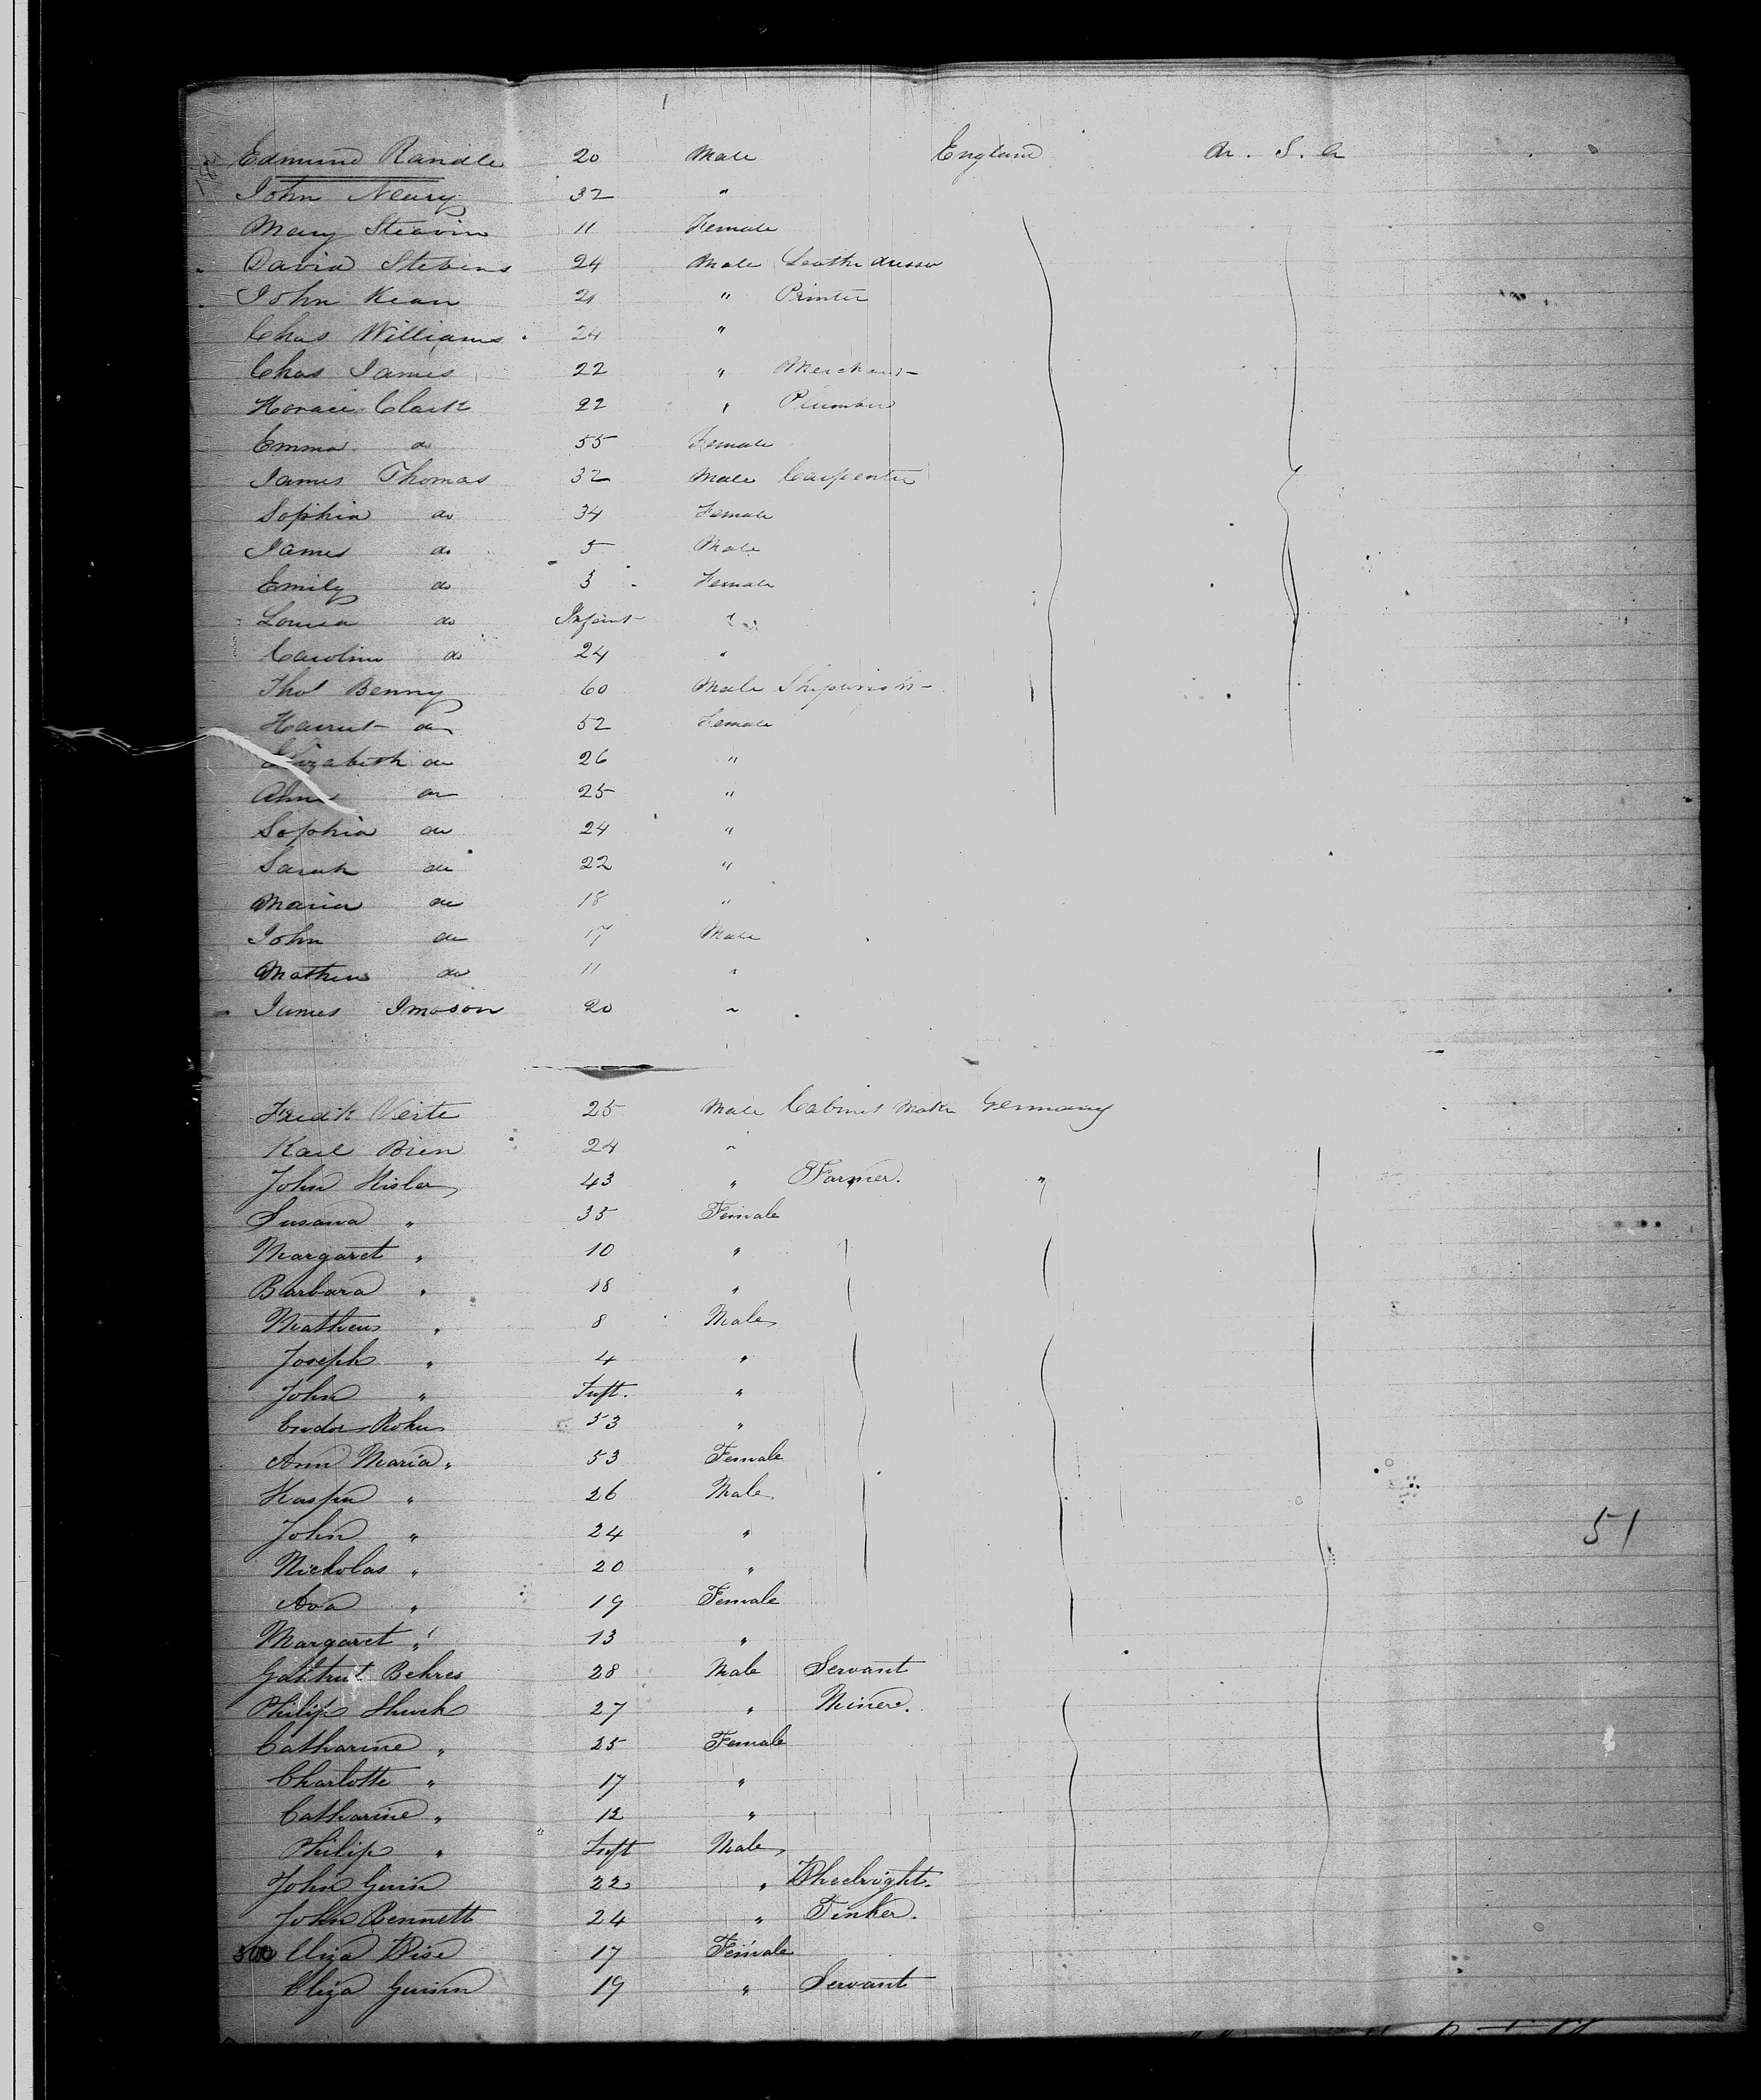 Edmund Randle 20 Male England U. S. A
John Neary 32 "
Mary Steavin 11 Female
David Stevens 24 Male Leather dresser
John Kean 21 " Printer
Chas Williams 24 "
Chas James 22 " Merchant
Horace Clark 22 " Plumber
Emma do 55 Female
James Thomas 32 Male Carpenter
Sophia do 34 Female
James do 5 Male
Emily do 3 Female
Louisa do Infant "
Caroline do 24 "
Thos Benny 60 Male
Harriet do 52 Female
Elizabeth do 26 "
Ann do 25 "
Sophia do 24 "
Sarah do 22 "
Maria do 18 "
John do 17 Male
Mathew do 11 "
James Imoson 20 "
Fredk Veite 25 Male Cabinet Maker Germany
Karl Brien 24 "
John Hisler 43 " Farmer. "
Susana " 35 Female
Margaret " 10 "
Barbara " 18 "
Mathew " 8 Male
Joseph " 4 "
John " Inft. "
Roker 53 "
Ann Maria " 53 Female
Kasper " 26 Male
John " 24 "
Nickolas " 20 "
Ava " 19 Female
Margaret " 13 "
Behres 28 Male Servant
Philip Shuck 27 " Miner.
Catharine " 25 Female
Charlotte " 17 "
Catharine " 12 "
Philip " Inft Male
John Guin 22 " Wheelright.
John Bennett 24 " Tinker.
500 Eliza Wise 17 Female
Eliza 19 " Servant
51